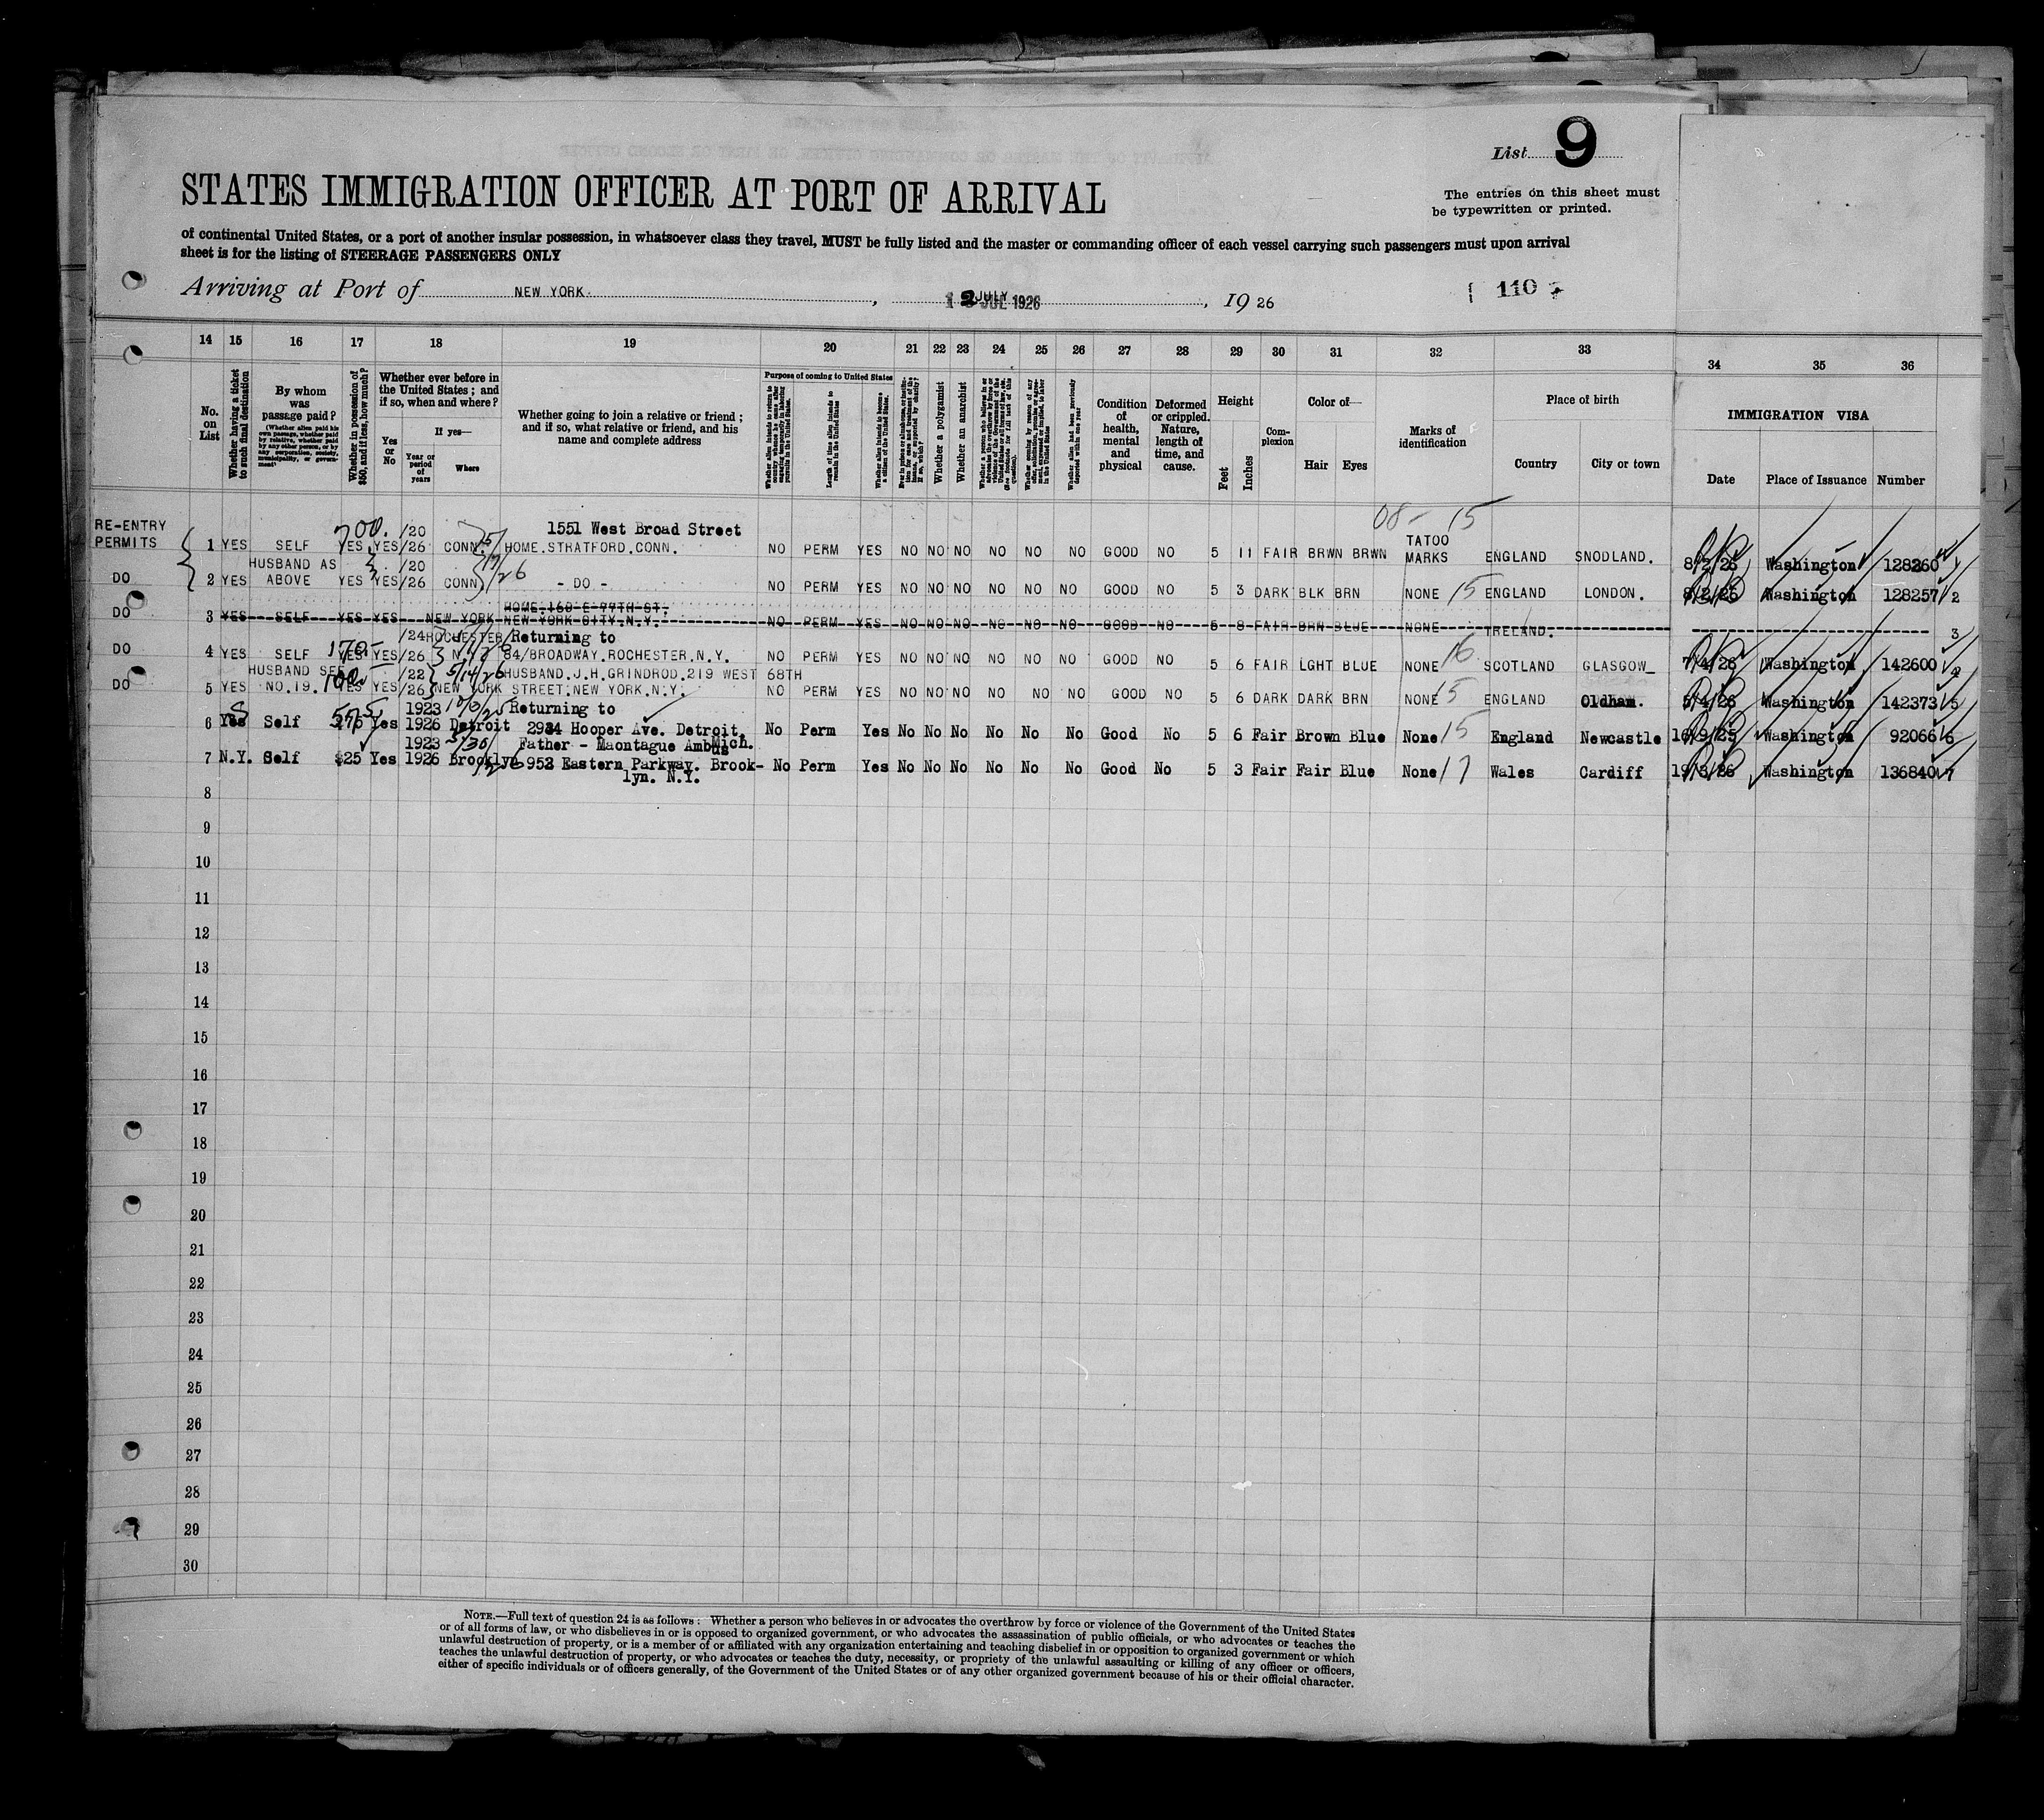 List 9
The entries on this sheet must
be typewritten or printed.
STATES IMMIGRATION OFFICER AT PORT OF ARRIVAL
of continental United States, or a port of another insular possession, in whatsoever class they travel, MUST be fully listed and the master or commanding officer of each vessel carrying such passengers must upon arrival
sheet is for the listing of STEERAGE PASSENGERS ONLY
Arriving at Port of NEW YORK, JULY JUL 1926, 19 26
110
14 15 16 17 18 19 20 21 22 23 24 25 26 27 28 29 30 31 32 33 34 35 36
No. on List
Whether having a ticket to such final destination
By whom was passage paid?
(Whether alien paid his own passage, whether paid by relative, whether paid by any other person, or by any corporation, society, municipality, or government)
Whether in possession of $50, and if less, how much?
Whether ever before in the United States; and if so, when and where?
Yes or No
If yes—
Year or period of years
Where
Whether going to join a relative or friend; and if so, what relative or friend, and his name and complete address
Purpose of coming to United States
Whether alien intends to return to country whence he came after engaging temporarily in laboring pursuits in the United States.
Length of time alien intends to remain in the United States
Whether alien intends to become a citizen of the United States.
Whether a polygamist
Whether an anarchist
Whether alien had been previously deported within one year
Condition of health, mental and physical
Deformed or crippled. Nature, length of time, and cause.
Height
Feet
Inches
Complexion
Color of—
Hair
Eyes
Marks of identification
Place of birth
Country
City or town
IMMIGRATION VISA
Date
Place of Issuance
Number
RE-ENTRY
PERMITS
700. /20 1551 West Broad Street 08- 15
1 YES SELF YES YES /26 CONN. HOME. STRATFORD. CONN. NO PERM YES NO NO NO NO NO NO GOOD NO 5 11 FAIR BRWN BRWN TATOO MARKS ENGLAND SNODLAND. 8/2/26 Washington 128260 1
5/17/26
DO 2 YES HUSBAND AS ABOVE YES YES /20 /26 CONN - DO - NO PERM YES NO NO NO NO NO NO GOOD NO 5 3 DARK BLK BRN NONE 15 ENGLAND LONDON. 8/2/26 Washington 128257 2
DO 3 YES SELF YES YES NEW YORK HOME. 160 E 77TH ST. NEW YORK CITY. N.Y. NO PERM YES NO NO NO NO NO NO GOOD NO 5 8 FAIR BRN BLUE NONE IRELAND. 3
DO 4 YES SELF 170.- YES YES /24 /26 ROCHESTER N.Y. Returning to 84/BROADWAY. ROCHESTER. N.Y. NO PERM YES NO NO NO NO NO NO GOOD NO 5 6 FAIR LGHT BLUE NONE 16 SCOTLAND GLASGOW 7/4/26 Washington 142600
DO 5 YES HUSBAND SEE NO. 19. 100.- YES YES /22 /26 5/14/26 NEW YORK HUSBAND. J.H. GRINDROD. 219 WEST 68TH STREET. NEW YORK. N.Y. NO PERM YES NO NO NO NO NO NO GOOD NO 5 6 DARK DARK BRN NONE 15 ENGLAND Oldham. 5/4/26 Washington 142373 5
6 Yes Self 575 Yes 1923 1926 Detroit Returning to 2934 Hooper Ave. Detroit, Mich. No Perm Yes No No No No No No Good No 5 6 Fair Brown Blue None 15 England Newcastle 16/9/25 Washington 92066 6
7 N.Y. Self $25 Yes 1923 1926 Brooklyn Father - Maontague Ambus 952 Eastern Parkway. Brook-
lyn. N.Y. No Perm Yes No No No No No No Good No 5 3 Fair Fair Blue None 17 Wales Cardiff 19/3/26 Washington 136840 7
8
9
10
11
12
13
14
15
16
17
18
19
20
21
22
23
24
25
26
27
28
29
30
NOTE.—Full text of question 24 is as follows: Whether a person who believes in or advocates the overthrow by force or violence of the Government of the United States
or of all forms of law, or who disbelieves in or is opposed to organized government, or who advocates the assassination of public officials, or who advocates or teaches the
unlawful destruction of property, or is a member of or affiliated with any organization entertaining and teaching disbelief in or opposition to organized government or which
teaches the unlawful destruction of property, or who advocates or teaches the duty, necessity, or propriety of the unlawful assaulting or killing of any officer or officers,
either of specific individuals or of officers generally, of the Government of the United States or of any other organized government because of his or their official character.